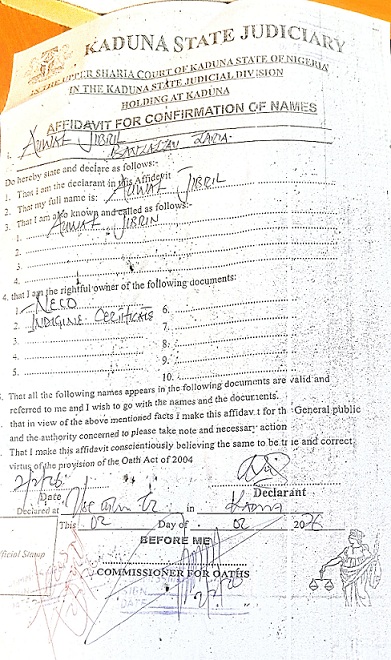 KADUNA STATE JUDICIARY
IN THE UPPER SHARIA COURT OF KADUNA STATE OF NIGERIA
IN THE KADUNA STATE JUDICIAL DIVISION
HOLDING AT KADUNA
AFFIDAVIT FOR CONFIRMATION OF NAMES
I, Auwal Jibril
Zaria.
Do hereby state and declare as follows:-
1. That I am the declarant in this affidavit
2. That my full name is: Auwal Jibril
3. That I am also known and called as follows:-
1. Auwal Jibrin
2.
3.
4.
4. that I am the rightful owner of the following documents:
1. NECO 6.
2. INDIGINE CERTIFICATE 7.
3. 8.
4. 9.
5. 10.
That all the following names appears in the following documents are valid and
referred to me and I wish to go with the names and the documents.
that in view of the above mentioned facts I make this affidavit for th General public
and the authority concerned to please take note and necessary action
That I make this affidavit conscientiously believing the same to be true and correct
virtue of the provision of the Oath Act of 2004
2/2/26
Date Declarant
Declared at in Kaduna
This 02 Day of 02 2026
BEFORE ME
COMMISSIONER FOR OATHS
SIGN
DATE